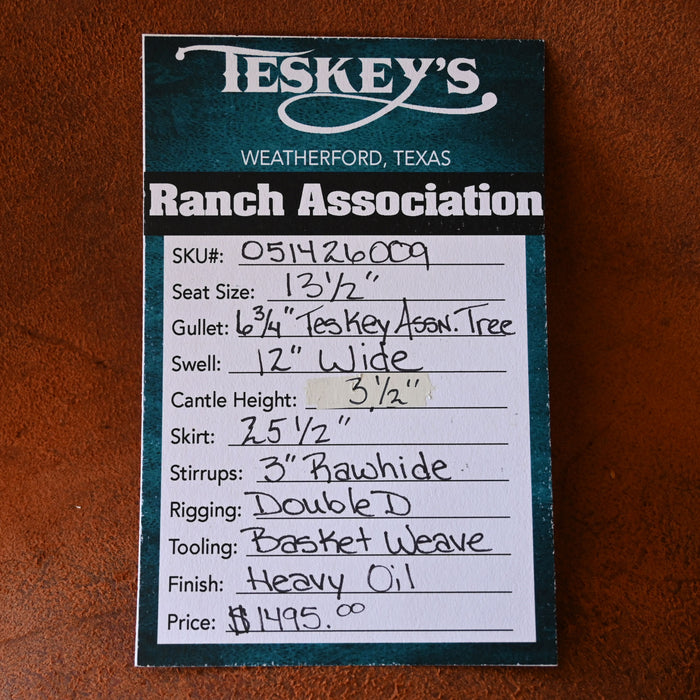 TESKEY'S
WEATHERFORD, TEXAS
Ranch Association
SKU#: 051426009
Seat Size: 13 1/2"
Gullet: 6 3/4" Teskey Assn. Tree
Swell: 12" Wide
Cantle Height: 3 1/2"
Skirt: 25 1/2"
Stirrups: 3" Rawhide
Rigging: Double D
Tooling: Basket Weave
Finish: Heavy Oil
Price: $1495.00